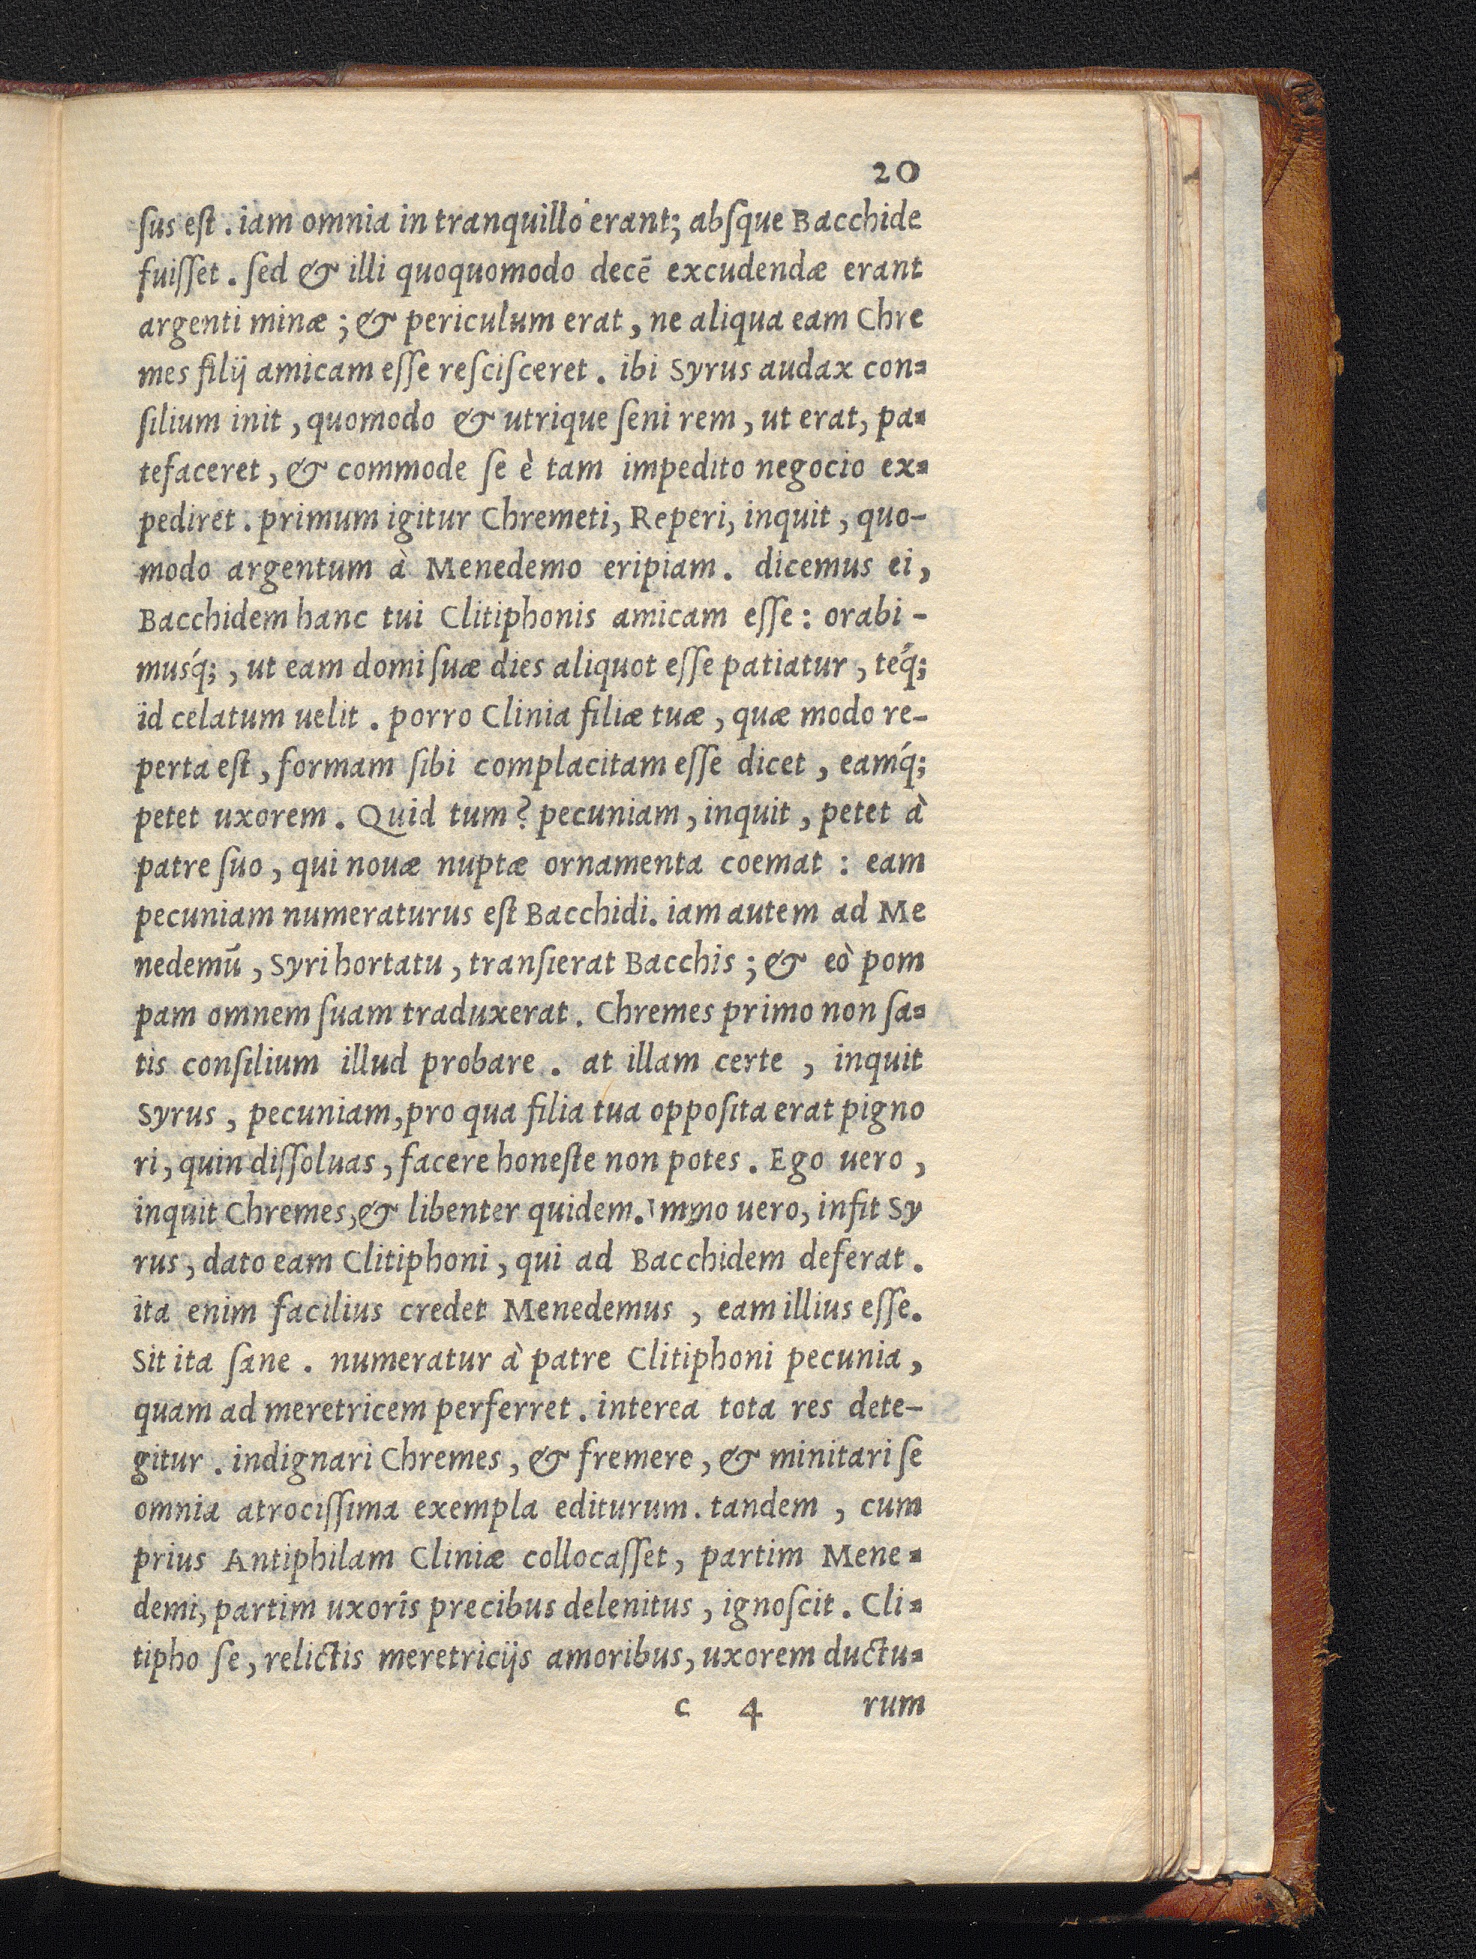 20
sus est . iam omnia in tranquillo erant; absque Bacchide
fuisset . sed & illi quoquomodo decē excudendæ erant
argenti minæ ; & periculum erat , ne aliqua eam Chre
mes filij amicam esse rescisceret . ibi Syrus audax con=
silium init , quomodo & utrique seni rem , ut erat, pa=
tefaceret , & commode se è tam impedito negocio ex=
pediret . primum igitur Chremeti, Reperi, inquit , quo-
modo argentum à Menedemo eripiam . dicemus ei,
Bacchidem hanc tui Clitiphonis amicam esse : orabi -
musq́; , ut eam domi suæ dies aliquot esse patiatur , teq́;
id celatum uelit . porro Clinia filiæ tuæ , quæ modo re-
perta est , formam sibi complacitam esse dicet , eamq́;
petet uxorem . Quid tum ? pecuniam , inquit , petet à
patre suo , qui nouæ nuptæ ornamenta coemat : eam
pecuniam numeraturus est Bacchidi. iam autem ad Me
nedemū , Syri hortatu , transierat Bacchis ; & eò pom
pam omnem suam traduxerat . Chremes primo non sa=
tis consilium illud probare . at illam certe , inquit
Syrus , pecuniam,pro qua filia tua opposita erat pigno
ri, quin dissoluas , facere honeste non potes . Ego uero ,
inquit Chremes,& libenter quidem. Immo uero, infit Sy
rus , dato eam Clitiphoni , qui ad Bacchidem deferat .
ita enim facilius credet Menedemus , eam illius esse.
Sit ita sane . numeratur à patre Clitiphoni pecunia ,
quam ad meretricem perferret . interea tota res dete-
gitur . indignari Chremes , & fremere , & minitari se
omnia atrocissima exempla editurum . tandem , cum
prius Antiphilam Cliniæ collocasset , partim Mene=
demi, partim uxoris precibus delenitus , ignoscit . Cli=
tipho se , relictis meretricijs amoribus, uxorem ductu=
c 4 rum